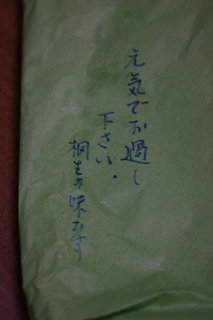 元気でお過し
下さい.
桐生の味です